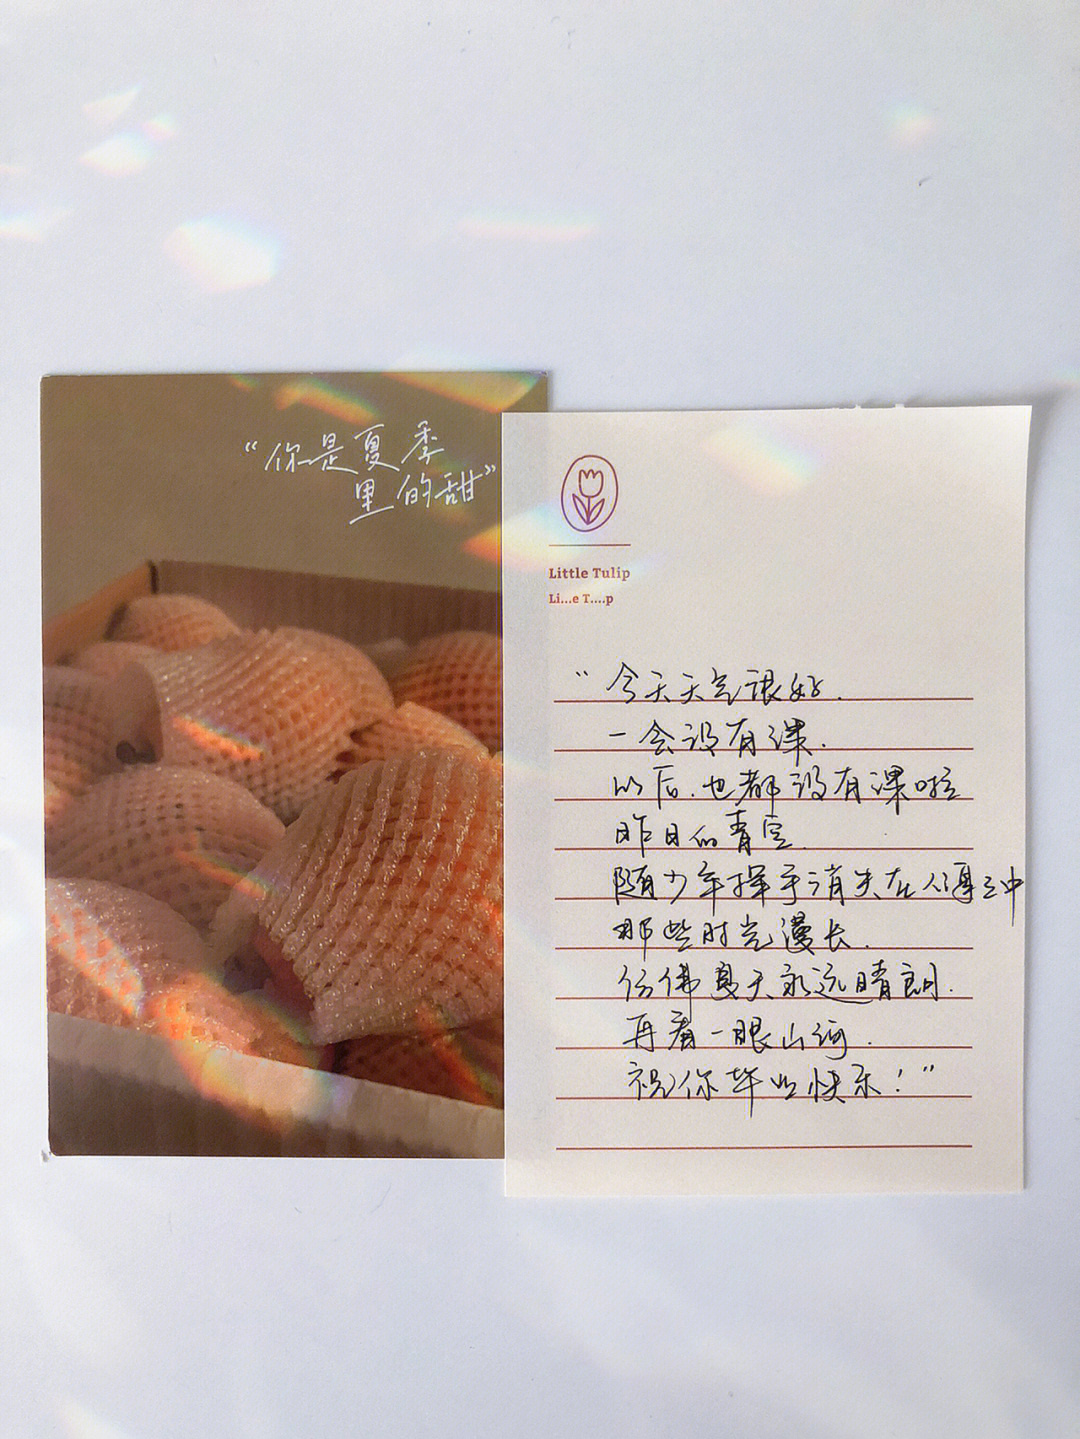 “你是夏季
里的甜”
Little Tulip
Li...e T....p
“今天天气很好.
一会没有课.
以后.也都没有课啦
昨日的青空.
随少年挥手消失在人海之中
那些时光漫长.
仿佛夏天永远晴朗.
再看一眼山河.
祝你毕业快乐！”